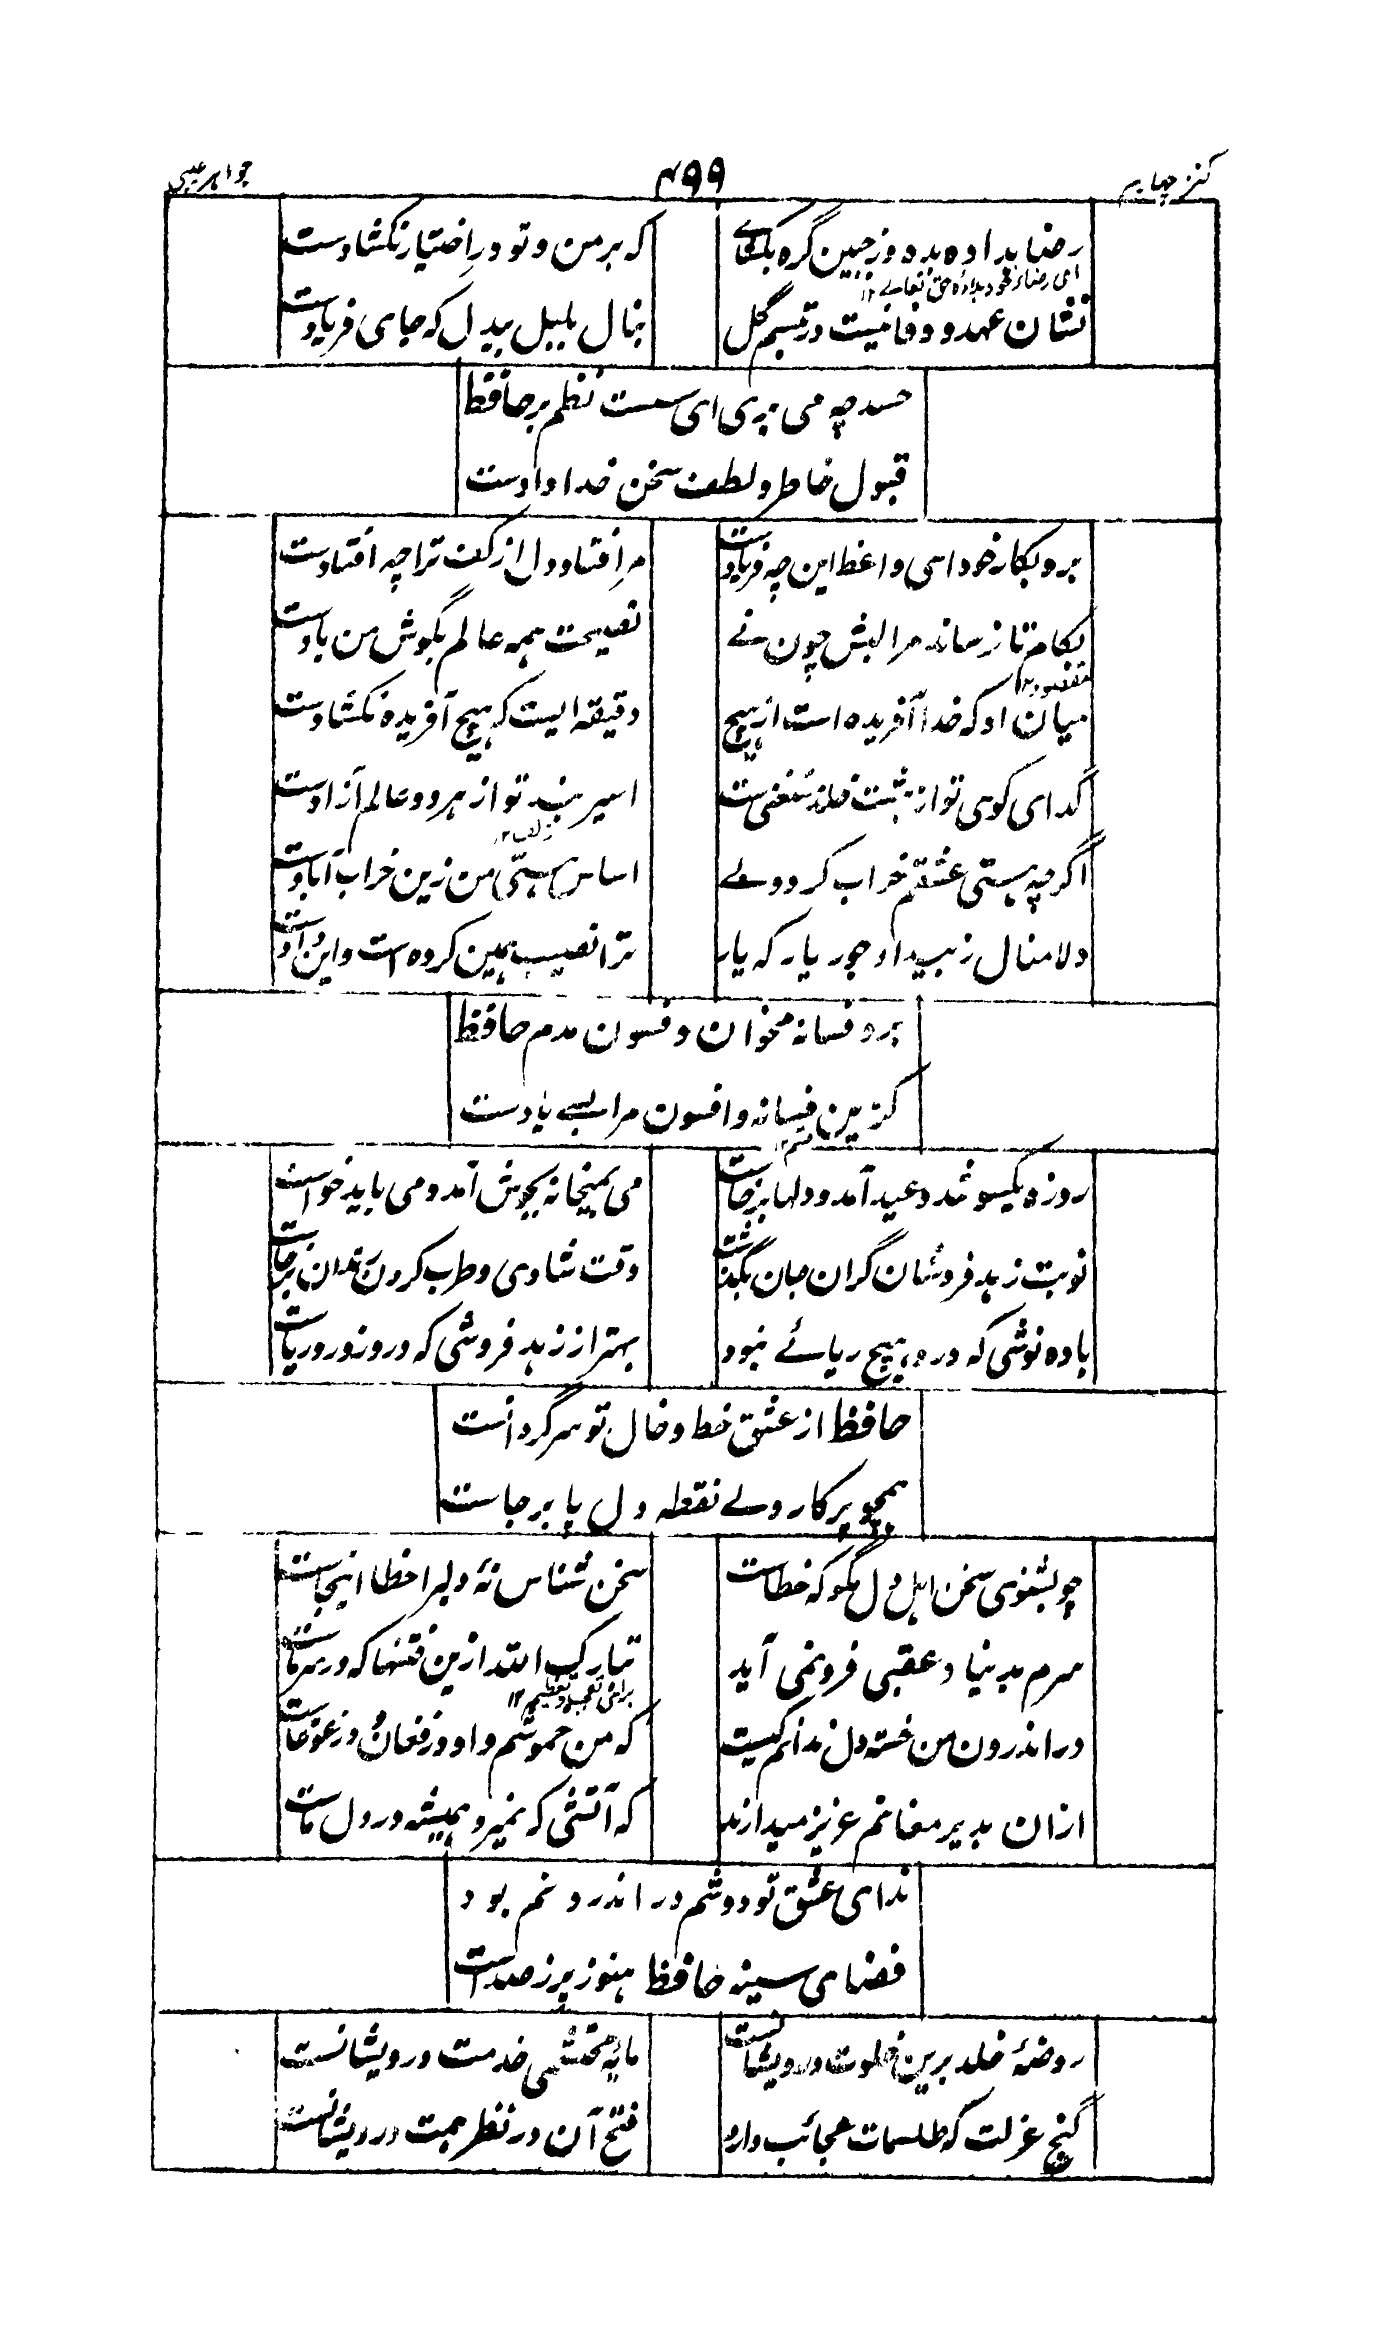 کنز چهارم
۴۹۹
جواهر عیبی
رضا بداده بده وز جبین گره بکشای
که بر من و تو در اختیار نکشادست
ای رضا از خود بداده حق تعالے ۱۲
نشان عهد و وفا نیست در تبسم گل
بنال بلبل بیدل که جای فریادست
حسد چه می بری ای سست نظم بر حافظ
قبول خاطر و لطف سخن خدا دادست
برو بکار خود ای واعظ این چه فریادست
مرا فتاد دل از کف ترا چه افتادست
بکام تا نرساند مرا لبش چون نے
نصیحت همه عالم بگوش من بادست
مقصود ۱۲
میان او که خدا آفریده است از هیچ
دقیقه ایست که هیچ آفریده نکشادست
گدای کوی تو از هشت خلد مستغنی ست
اسیر بند تو از هر دو عالم آزادست
زلف ۱۲
اگرچه هستی عشقم خراب کرد ولے
اساس هستی من زین خراب آبادست
دلا منال ز بیداد جور یار که یار
ترا نصیب همین کرده است و این دادست
برو فسانه مخوان و فسون مدم حافظ
کزین فسانه و افسون مرا بسے یادست
روزه یکسو شد و عید آمد و دلها برخاست
می بمیخانه بجوش آمد و می باید خواست
نوبت زهد فروشان گران جان بگذشت
وقت شادی و طرب کردن رندان برخاست
باده نوشی که درو هیچ ریائے نبود
بهتر از زهد فروشی که درو زور و ریاست
حافظ از عشق خط و خال تو سرگردانست
همچو پرکار ولے نقطه دل پا برجاست
چو بشنوی سخن اهل دل مگو که خطاست
سخن شناس نۀ دلبرا خطا اینجاست
سرم بدنیا و عقبی فرو نمی آید
تبارک الله ازین فتنها که در سر ماست
برای تعجب و تعظیم ۱۲
در اندرون من خسته دل ندانم کیست
که من خموشم و او در فغان و در غوغاست
ازان بدیر مغانم عزیز میدارند
که آتشی که نمیرد همیشه در دل ماست
ندای عشق تو دوشم در اندرونم بود
فضای سینه حافظ هنوز پر ز صداست
روضۀ خلد برین خلوت درویشانست
مایۀ محتشمی خدمت درویشانست
گنج عزلت که طلسمات عجائب دارد
فتح آن در نظر همت درویشانست